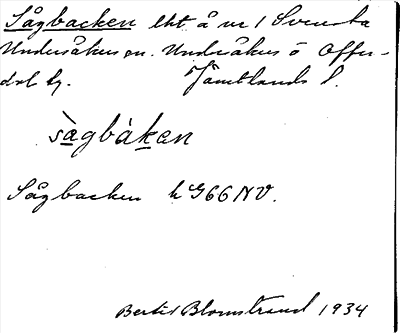 Sågbacken lht å nr 1 Svenska
Undersåkers sn. Undersåkers o Offer-
dals tg. Jämtlands l.
sàgbàken
Sågbacken h G66NV.
Bertil Blomstrand 1934